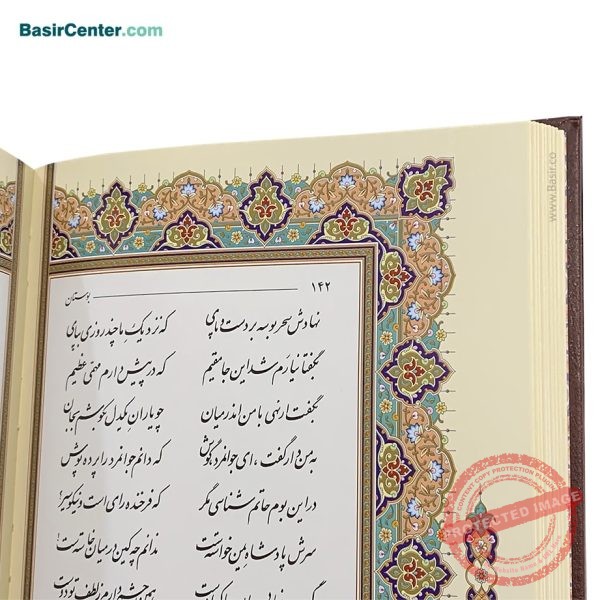 BasirCenter.com
۱۴۲ بوستان
نهادش سحر بوسه بر دست و پای که نزدیک ما چند روزی بپای
بگفتا نیارم شد این جا مقیم که در پیش دارم مهمی عظیم
بگفت ار نهی با من اندر میان چو یاران یکدل بکوشم بجان
به من دار گفت، ای جوانمرد گوش که دانم جوانمرد را پرده پوش
در این بوم حاتم شناسی مگر که فرخنده رای است و نیکو سیر؟
سرش پادشاه یمن خواسته‌ست ندانم چه کین در میان خاسته‌ست!
همین چشم دارم ز لطف تو دوست
www.Basir.co
PROTECTED IMAGE